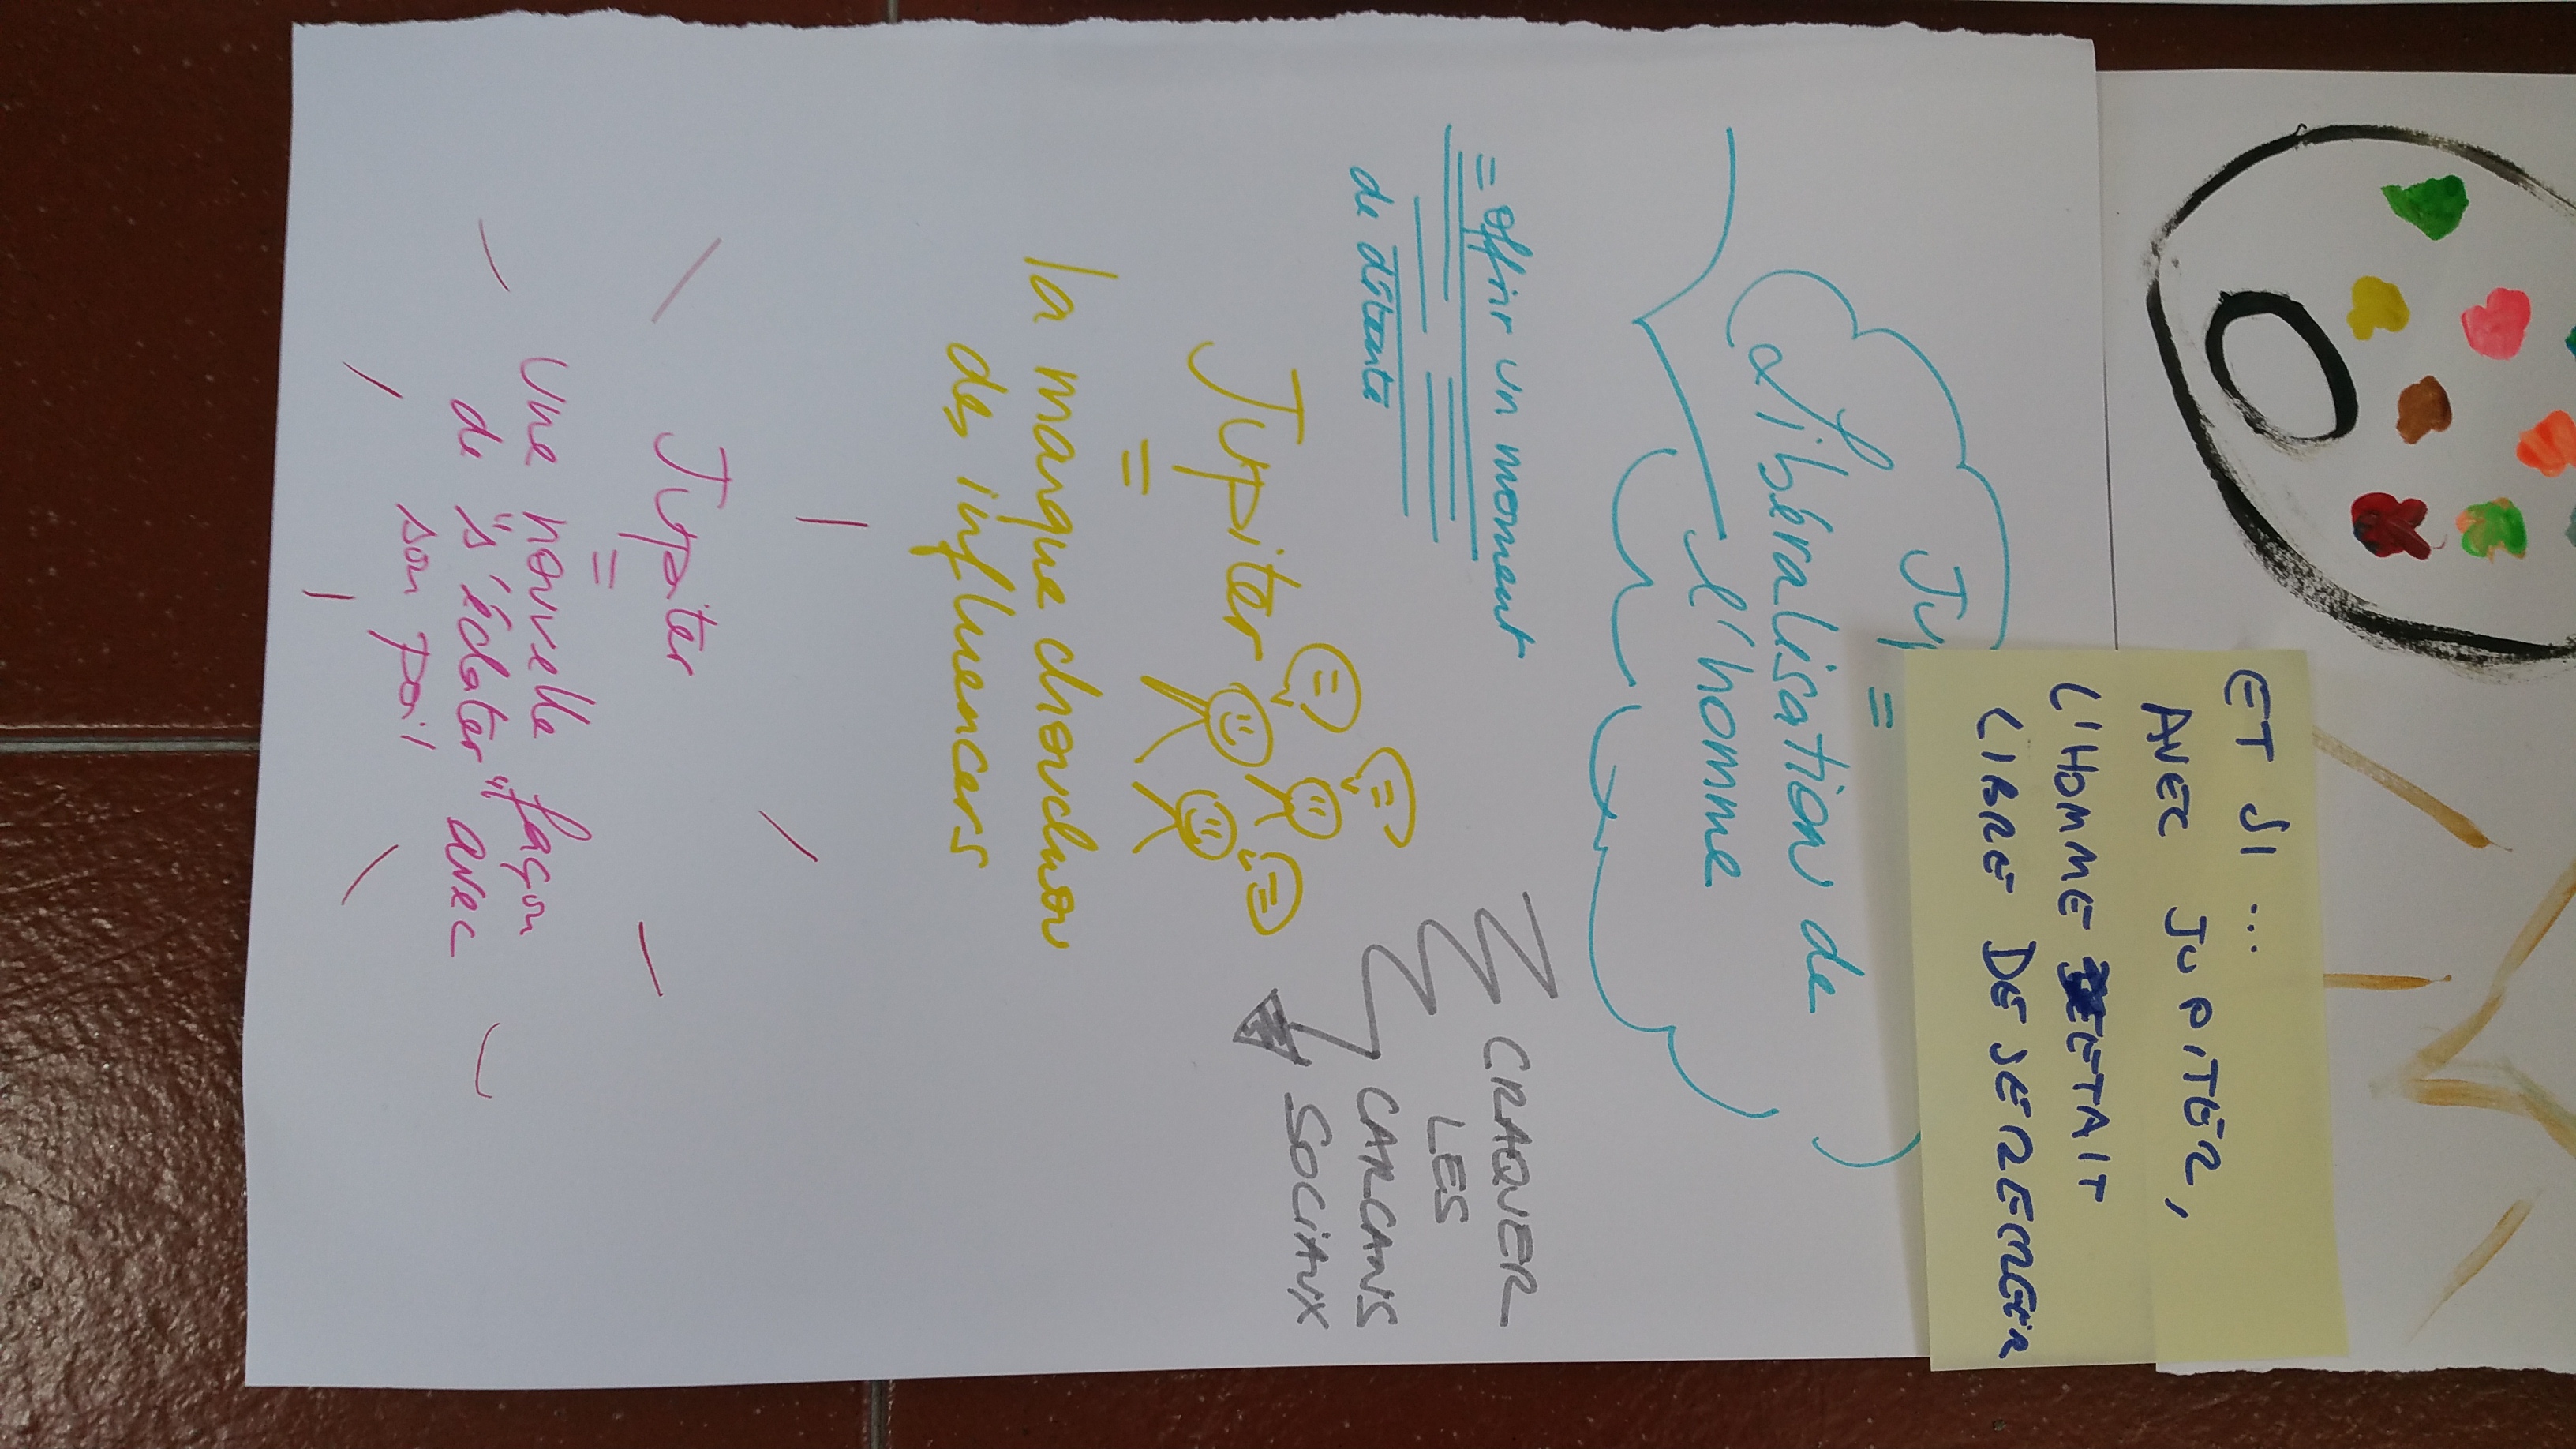 ET SI ...
AVEC JUPITER,
L'HOMME ETAIT
LIBRE DE SE RÉMGER
Ju
=
Libéralisation de
l'homme
= offrir un moment
de détente
CRAQUER
LES
CARCANS
SOCIAUX
Jupiter
=
la marque chouchou
des influencers
Jupiter
=
Une nouvelle façon
de "s'éclater" avec
son poil